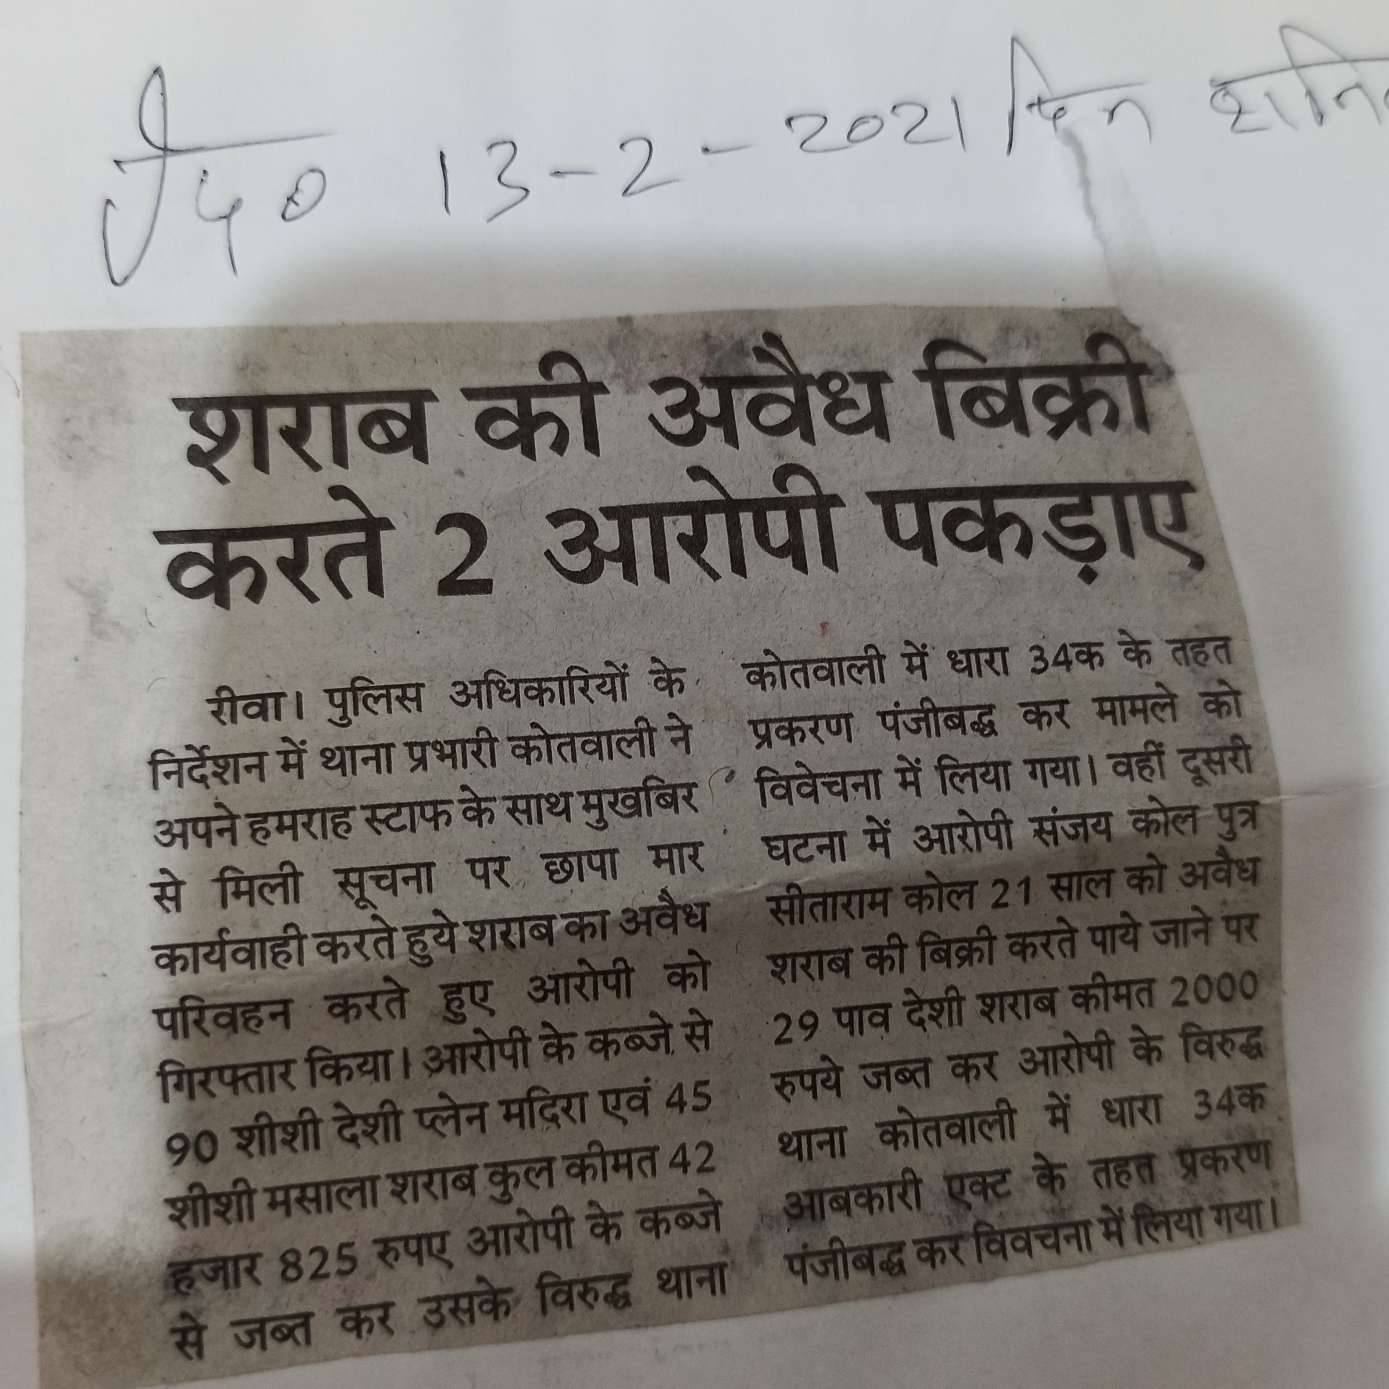 दि० 13-2-2021 दिन
शराब की अवैध बिक्री
करते 2 आरोपी पकड़ाए
रीवा। पुलिस अधिकारियों के
निर्देशन में थाना प्रभारी कोतवाली ने
अपने हमराह स्टाफ के साथ मुखबिर
से मिली सूचना पर छापा मार
कार्यवाही करते हुये शराब का अवैध
परिवहन करते हुए आरोपी को
गिरफ्तार किया। आरोपी के कब्जे से
90 शीशी देशी प्लेन मदिरा एवं 45
शीशी मसाला शराब कुल कीमत 42
हजार 825 रुपए आरोपी के कब्जे
से जब्त कर उसके विरुद्ध थाना
कोतवाली में धारा 34क के तहत
प्रकरण पंजीबद्ध कर मामले को
विवेचना में लिया गया। वहीं दूसरी
घटना में आरोपी संजय कोल पुत्र
सीताराम कोल 21 साल को अवैध
शराब की बिक्री करते पाये जाने पर
29 पाव देशी शराब कीमत 2000
रुपये जब्त कर आरोपी के विरुद्ध
थाना कोतवाली में धारा 34क
आबकारी एक्ट के तहत प्रकरण
पंजीबद्ध कर विवचना में लिया गया।